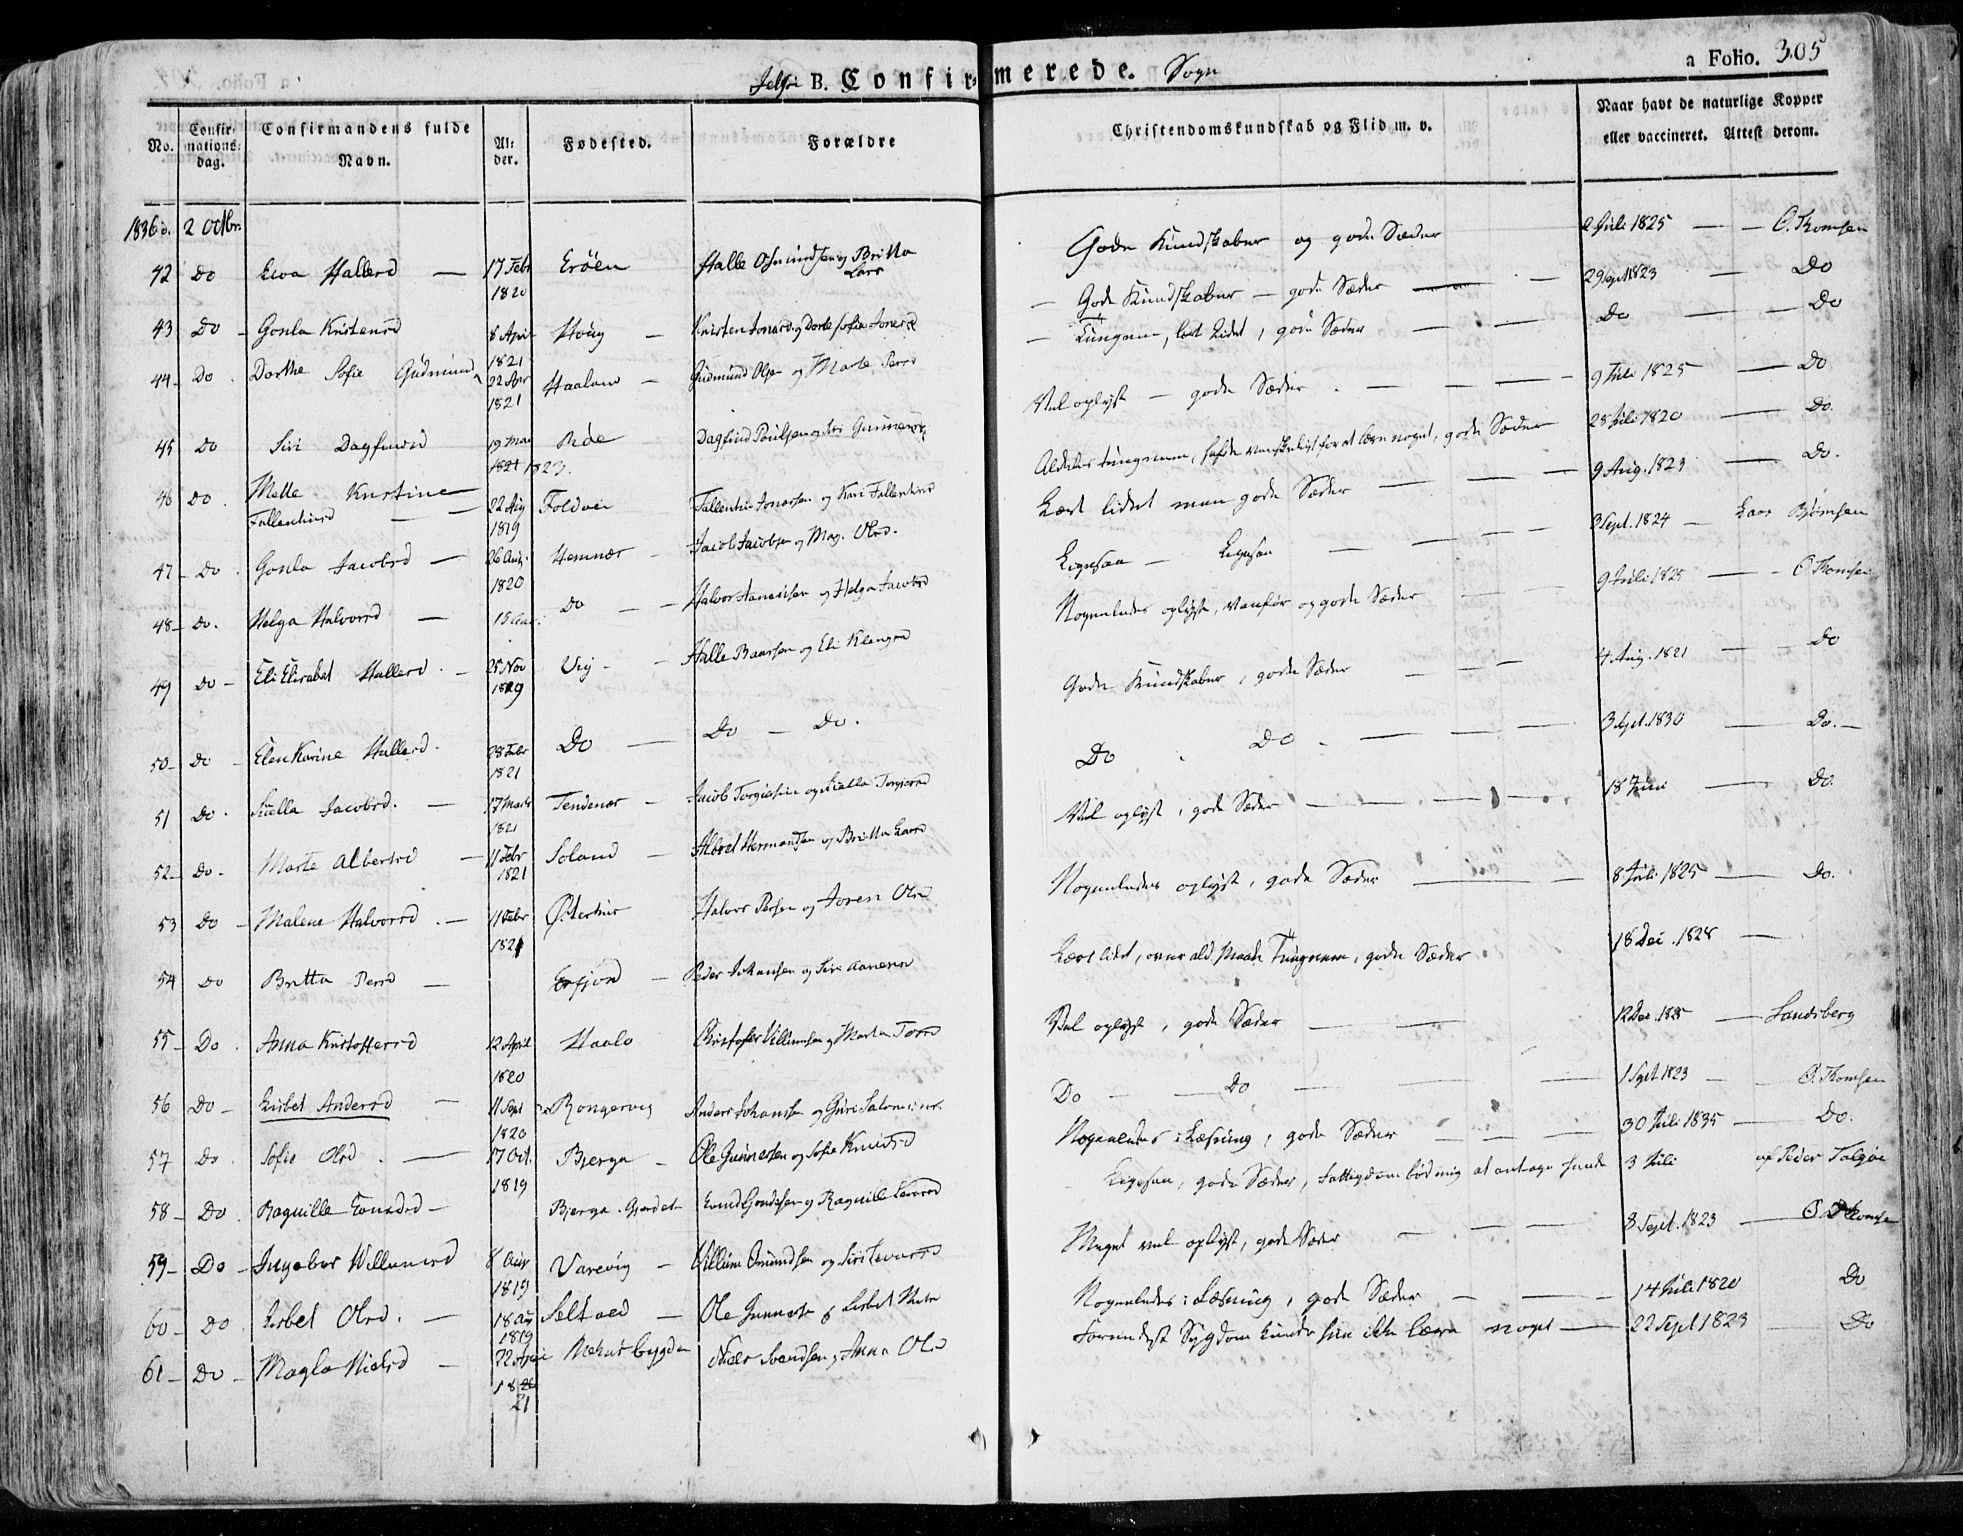 Jelse B. Confirmerede. Sogn
a Folio. 305
No. Confirmations-dag. Confirmandens fulde Navn. Alder. Fødested. Forældre Christendomskundskab og Flid m. v. Naar havt de naturlige Kopper eller vaccineret. Attest derom.
1836 2 Octbr
42 Do Eva Hallesd — 17 Febr 1820 Erøen Halle Osmundsen og Britta Lars Gode Kundskaber og gode Sæder 2 Juli 1825 — — O. Thomsen
43 Do Gonla Kristensd 8 Apri 1821 Houg — Kristen Jonass. og Dorte Sofie Jonasd — Gode Kundskaber — gode Sæder — 29 Sept 1823 — Do
44 Do Dorthe Sofie Gudmund 22 1821 Haaland — Gudmund Olsen og Marte Persd — Tungnem, lært Lidet, gode Sæder — — Do — Do
45 Do Siri Dagfinsd 19 Mai 1821 1823. Røe Dagfind Poulsen og Siri Gunnarsd Vel oplyst — gode Sæder. — — 9 Juli 1825 — Do
46 Do Mette Kristine Fallentinsd — 22 Aug 1819 Foldøen Fallentin Jonassen og Kari Fallentinsd Aldeles tungnem, havde vanskeligt for at lære noget, gode Sæder 28 Juli 1820 — Do.
47 Do Gonla Jacobsd — 26 Aug. 1820 Hemnær Jacob Jacobsen og Mag. Olsd. Lært lidet men gode Sæder — 9 Aug. 1823 — Do.
48 Do. Helga Halvorsd — 15 Do — Halvor Hansen og Helga Jacobsd Ligesaa — Ligesaa — 3 Sept. 1824 — Lars Bjørnsen
49 Do Eli Elisabet Hallesd. — 25 Nov 1819 Vig — Halle Baarsen og Eli Klengsd Nogenledes oplyst, vanfør og gode Sæder — 9 Juli 1825 — O. Thomsen
50 Do Elen Karine Hallesd. 28 Febr 1821 Do — Do — Do. Gode Kundskaber, gode Sæder — 4 Aug. 1821 — Do
51 Do. Siella Jacobsd. — 17 Marts 1821 Tendenær — Jacob Torgiersen og Siella Torgersd Do. Do. — 3 Sept. 1830 — Do. —
52 Do. Marte Albertsd — 11 Febr 1821 Soland — Albret Hermandsen og Britta Larsd Vel oplyst, gode Sæder — 18 Juni — Do.
53 Do Malene Halvorsd. — 11 Febr 1821 Østerhus Halvor Persen og Joren Olsd Nogenledes oplyst, gode Sæder — 8 Juli 1825 — Do.
54 Do Britta Persd — Erfjord — Peder Johansen og Siri Aanensd Lært lidet, over ald Maade Tungnem, gode Sæder 18 Dec. 1828 —
55 Do. Anna Kristoffersd 12 April 1820 Haalo Christofer Villumsen og Marta Torsd Vel oplyst, gode Sæder — 12 Dec. — Sandsberg
56 Do Lisbet Andersd — 11 Sept 1820 Rongevig Anders Johansen og Guri Salomons. Do — Do — 1 Sept 1823 — O. Thomsen
57 Do. Sofie Olsd. — 17 Oct. 1819 Bjerga — Ole Gunnersen og Sofie Knudsd Nogenledes i Læsning, gode Sæder — 30 Juli 1835 — Do.
58 Do. Ragnille — Bjerga. Gjerdet Knud og Ragnille Ligesaa, gode Sæder, Fattigdom bød mig at antage hende 3 Juli af Peder Talgøe
59 Do Ingebor Willumsd 8 1819 Varevig — Villum Omundsen og Siri Meget vel oplyst, gode Sæder — 8 Sept. 1823 — O. Thomsen
60 Do Lisbet Olsd. — 18 1819 — Ole og Lisbet Nogenledes i Læsning, gode Sæder — 14 Juli 1820 Do
61 Do Magla Nielsd — 22 1821 Niels Svendsen og Anna Olsd Formedelst Sygdom kunde hun ikke lære noget — 22 Sept 1823 Do